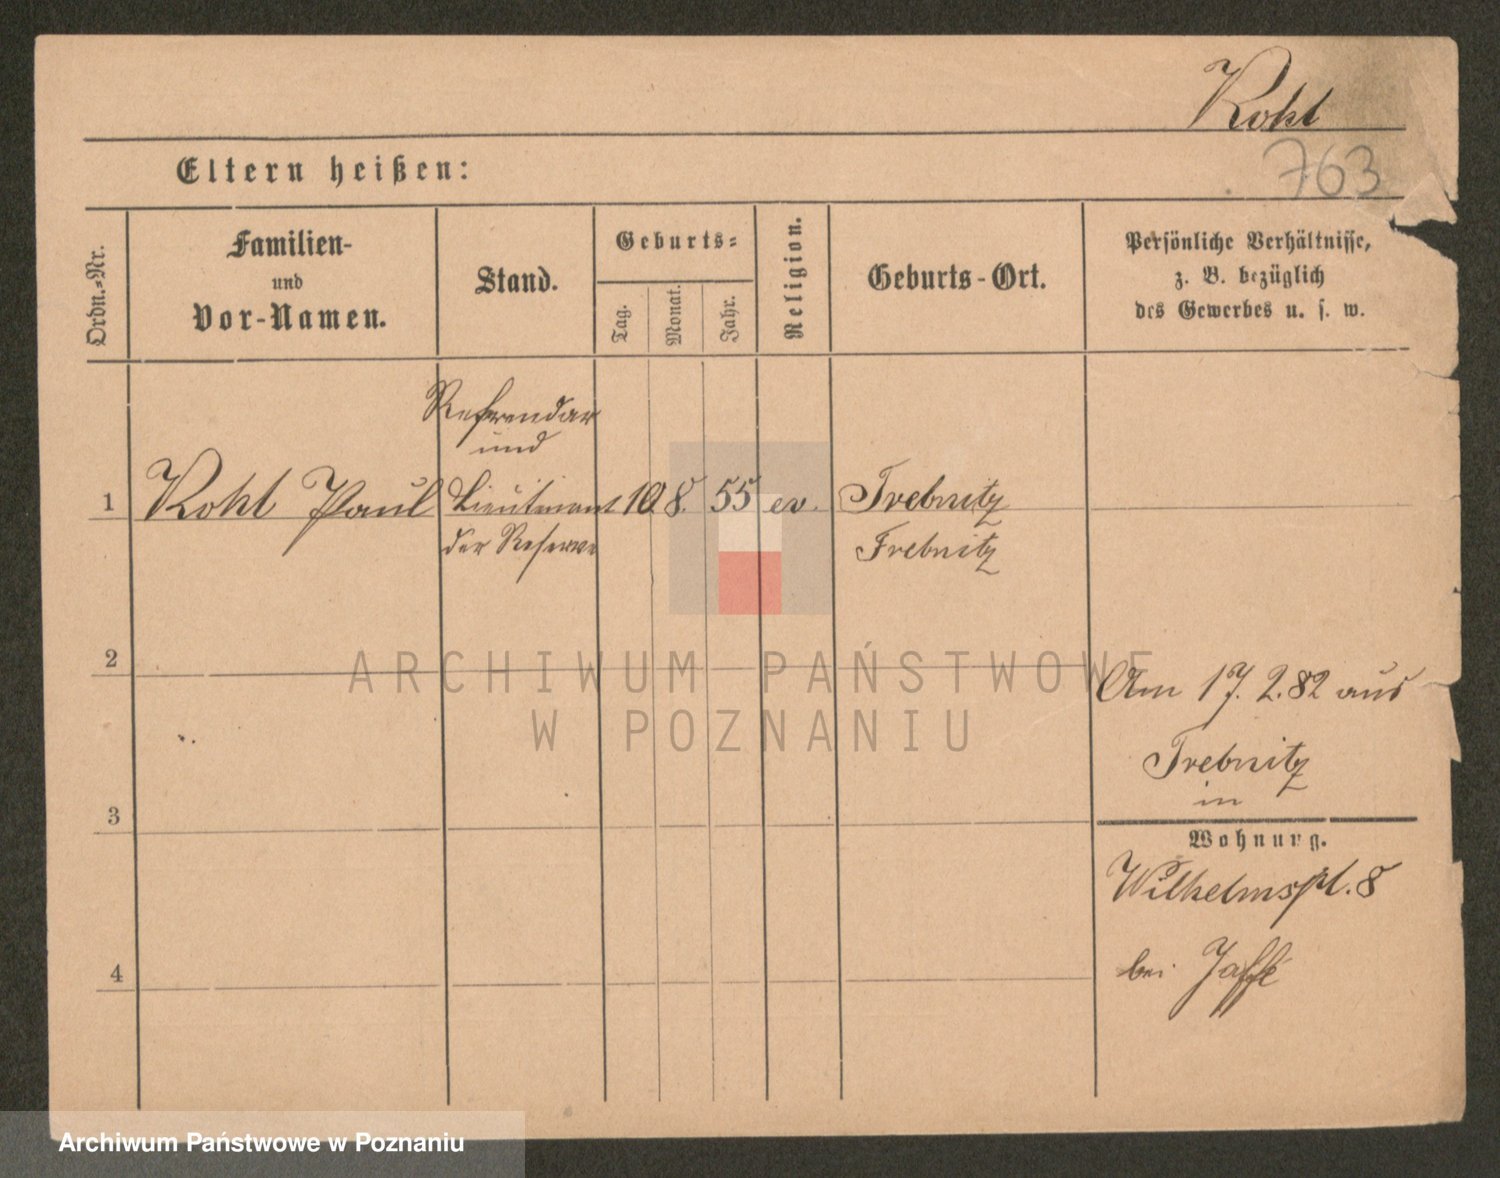 Kohl
763
Eltern heißen:
Ordn.-Nr.
Familien-
und
Vor-Namen.
Stand.
Geburts-
Tag.
Monat.
Jahr.
Religion.
Geburts-Ort.
Persönliche Verhältnisse,
z. B. bezüglich
des Gewerbes u. s. w.
Referendar
und
1 Kohl Paul Lieutenant 10 8. 55 ev. Trebnitz
der Reserve Trebnitz
2
ARCHIWUM PAŃSTWOWE
W POZNANIU
Am 17. 2. 82 aus
Trebnitz
in
3
Wohnung.
Wilhelmspl. 8
4
bei Jaffé
Archiwum Państwowe w Poznaniu